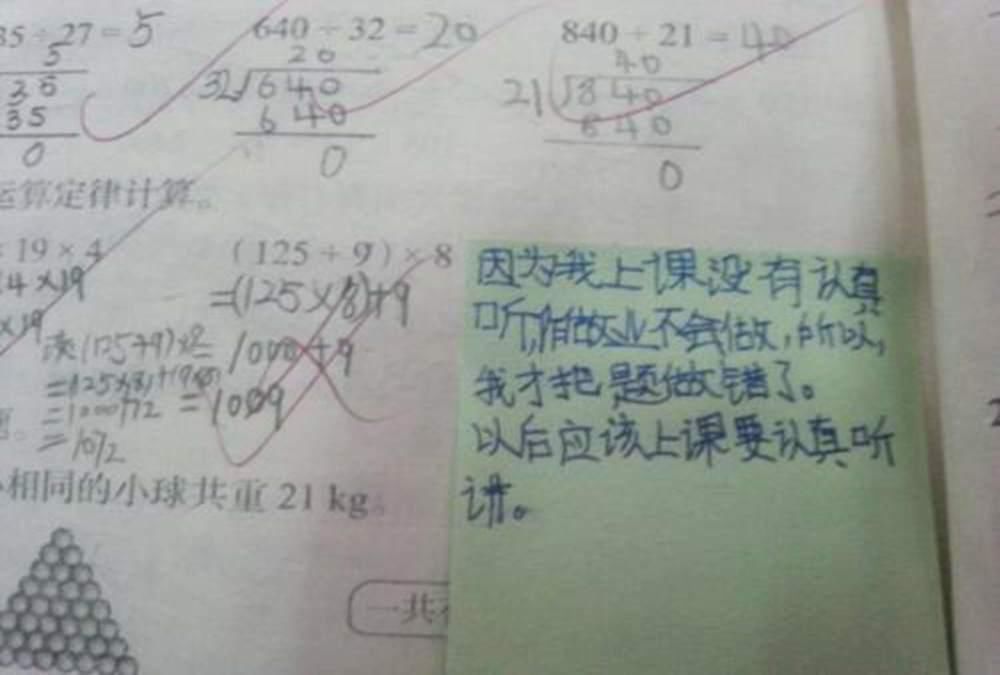 35÷27=5
5
35
35
0
640÷32=20
20
32√640
640
0
840÷21=40
40
21√840
840
0
运算定律计算。
×19×4
4×19
×19
(125+9)×8
=(125×8)+9
=1000+9
=1009
(125+9)×8
=1000+72
=1072
相同的小球共重21 kg。
一共
因为我上课没有认真
听,作业不会做,所以,
我才把题做错了。
以后应该上课要认真听
讲。